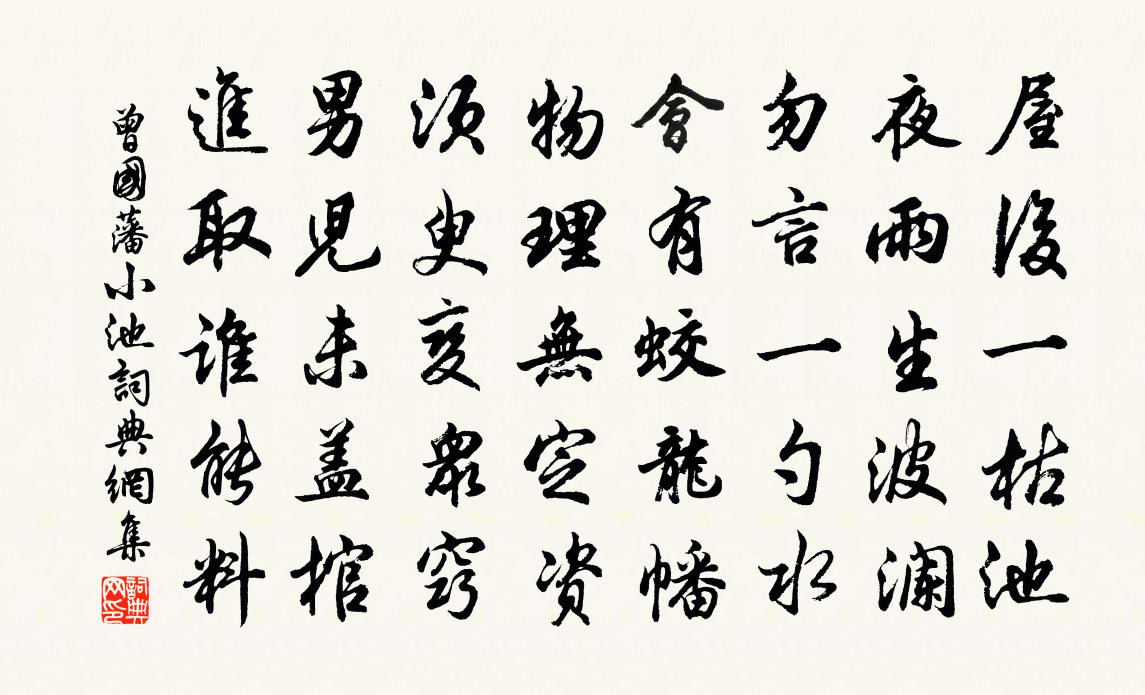 屋後一枯池
夜雨生波瀾
勿言一勺水
會有蛟龍幡
物理無定資
須臾變衆竅
男兒未蓋棺
進取誰能料
曾國藩小池詞典網集
詞典
网印